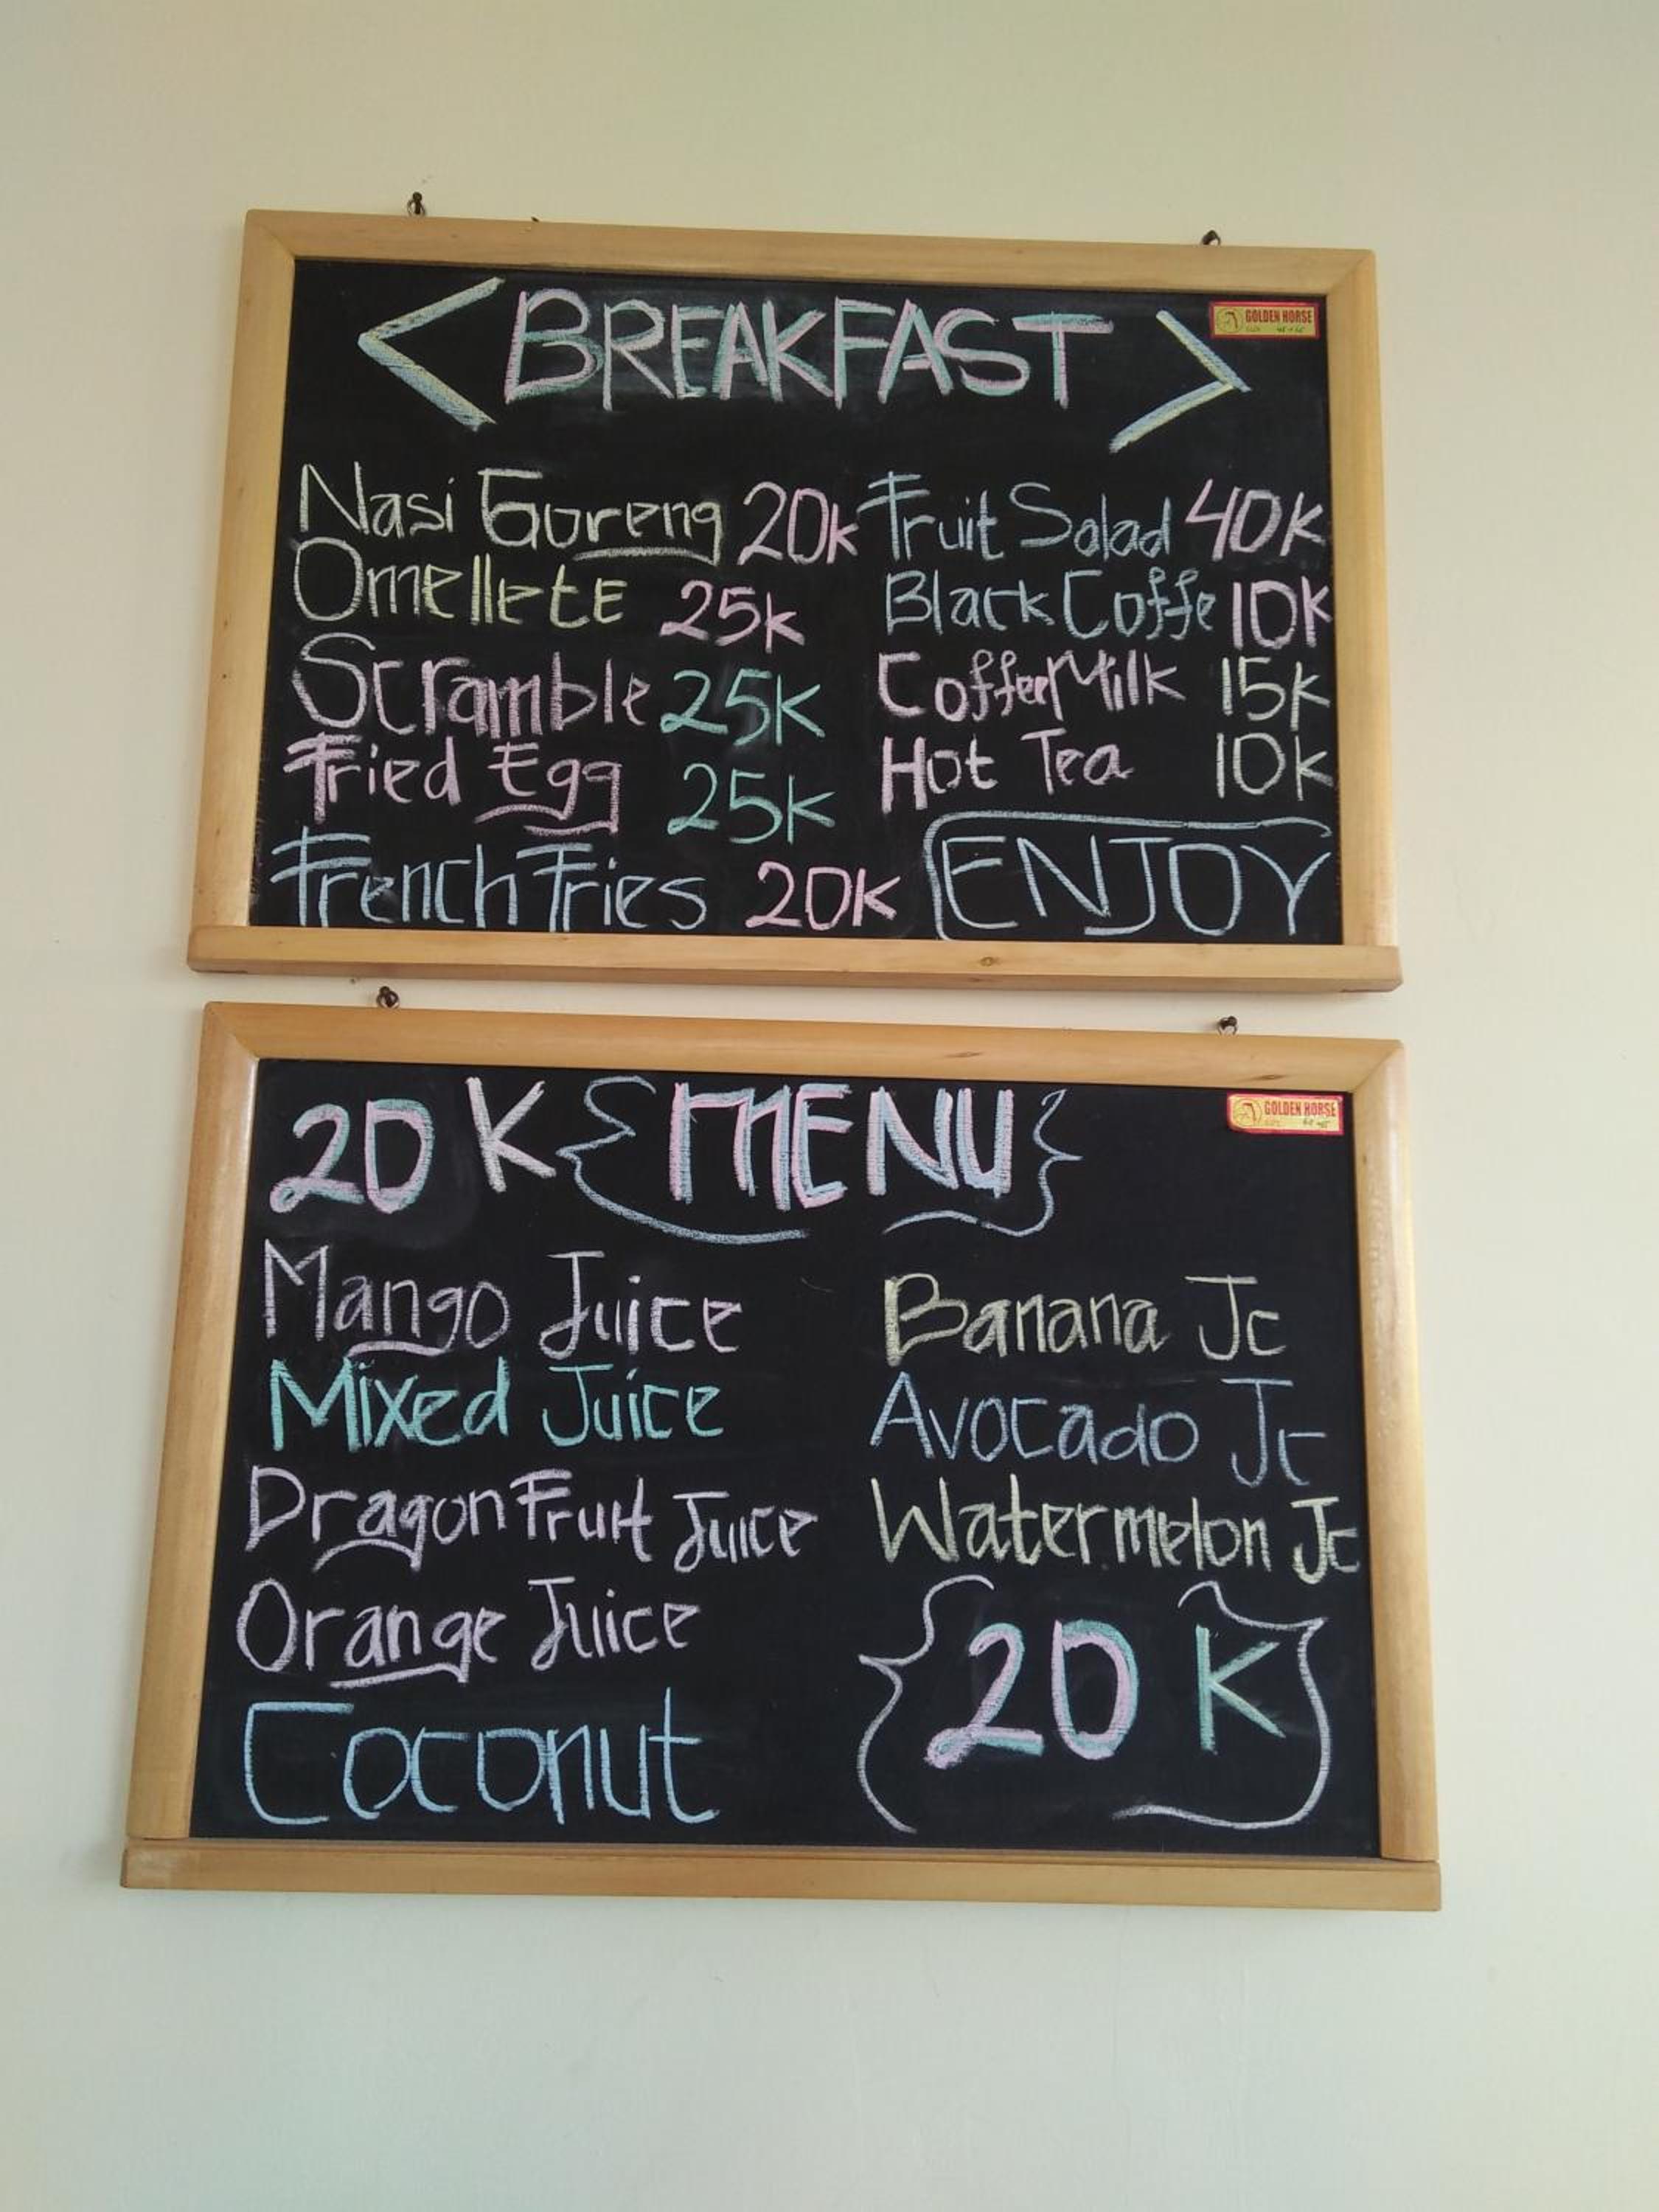 < BREAKFAST >
GOLDEN HORSE
Nasi Goreng 20K
Omellete 25K
Scramble 25K
Fried Egg 25K
French Fries 20K
Fruit Salad 40K
Black Coffe 10K
Coffee Milk 15K
Hot Tea 10K
ENJOY
20 K { MENU }
GOLDEN HORSE
Mango Juice
Mixed Juice
Dragon Fruit Juice
Orange Juice
Coconut
Banana Jc
Avocado Jc
Watermelon Jc
{ 20 K }